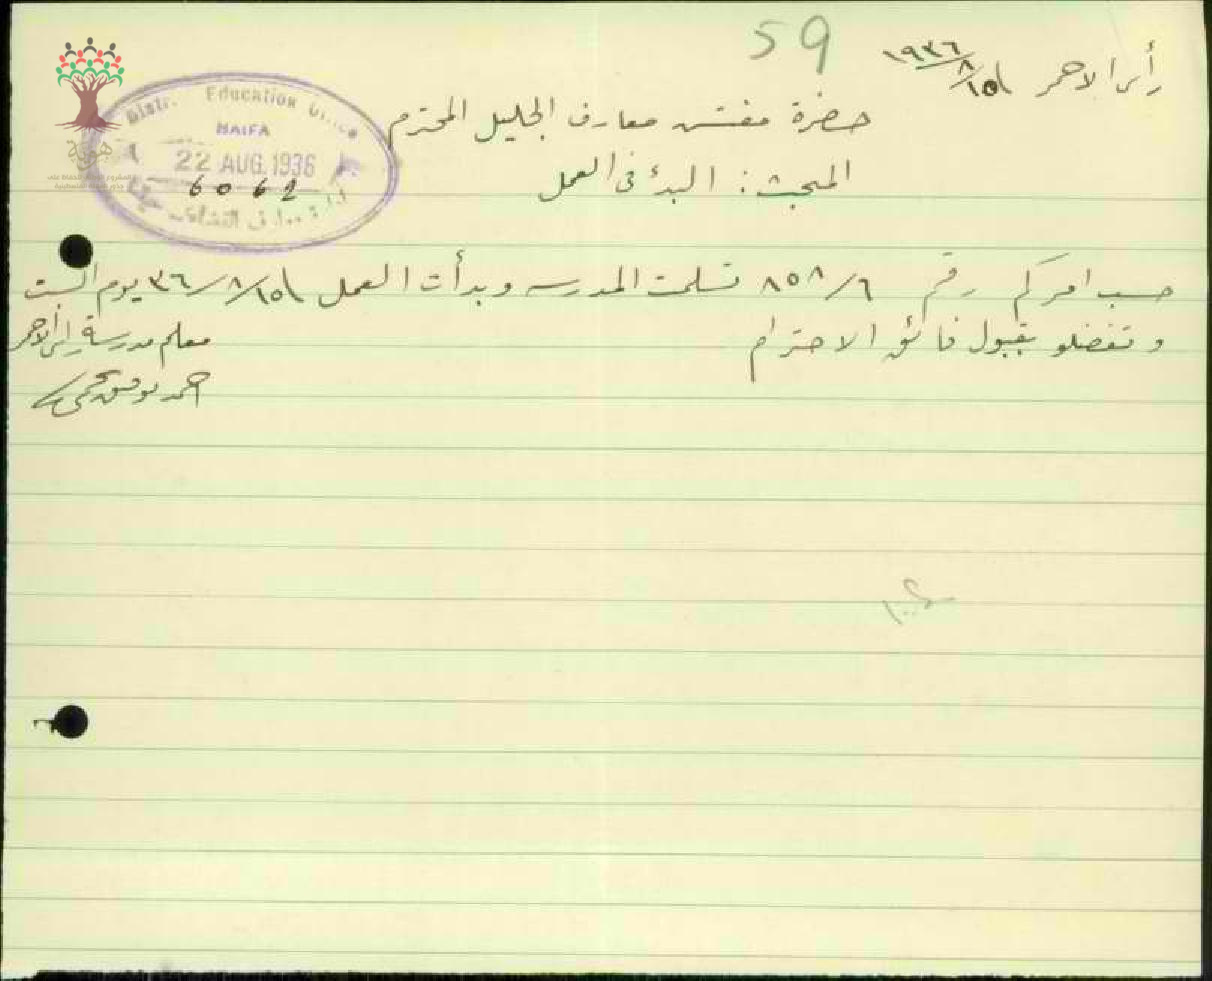 59
رأس الاحمر ١٥/٨/١٩٣٦
حضرة مفتش معارف الجليل المحترم
المبحث: البدء فى العمل
Distr. Education Office
HAIFA
22 AUG. 1936
6062
حسب امركم رقم ٨٥٨/٦ تسلمت المدرسه وبدأت العمل ١٥/٨/٣٦ يوم السبت
وتفضلو بقبول فائق الاحترام
معلم مدرسة راس الاحمر
احمد توفيق